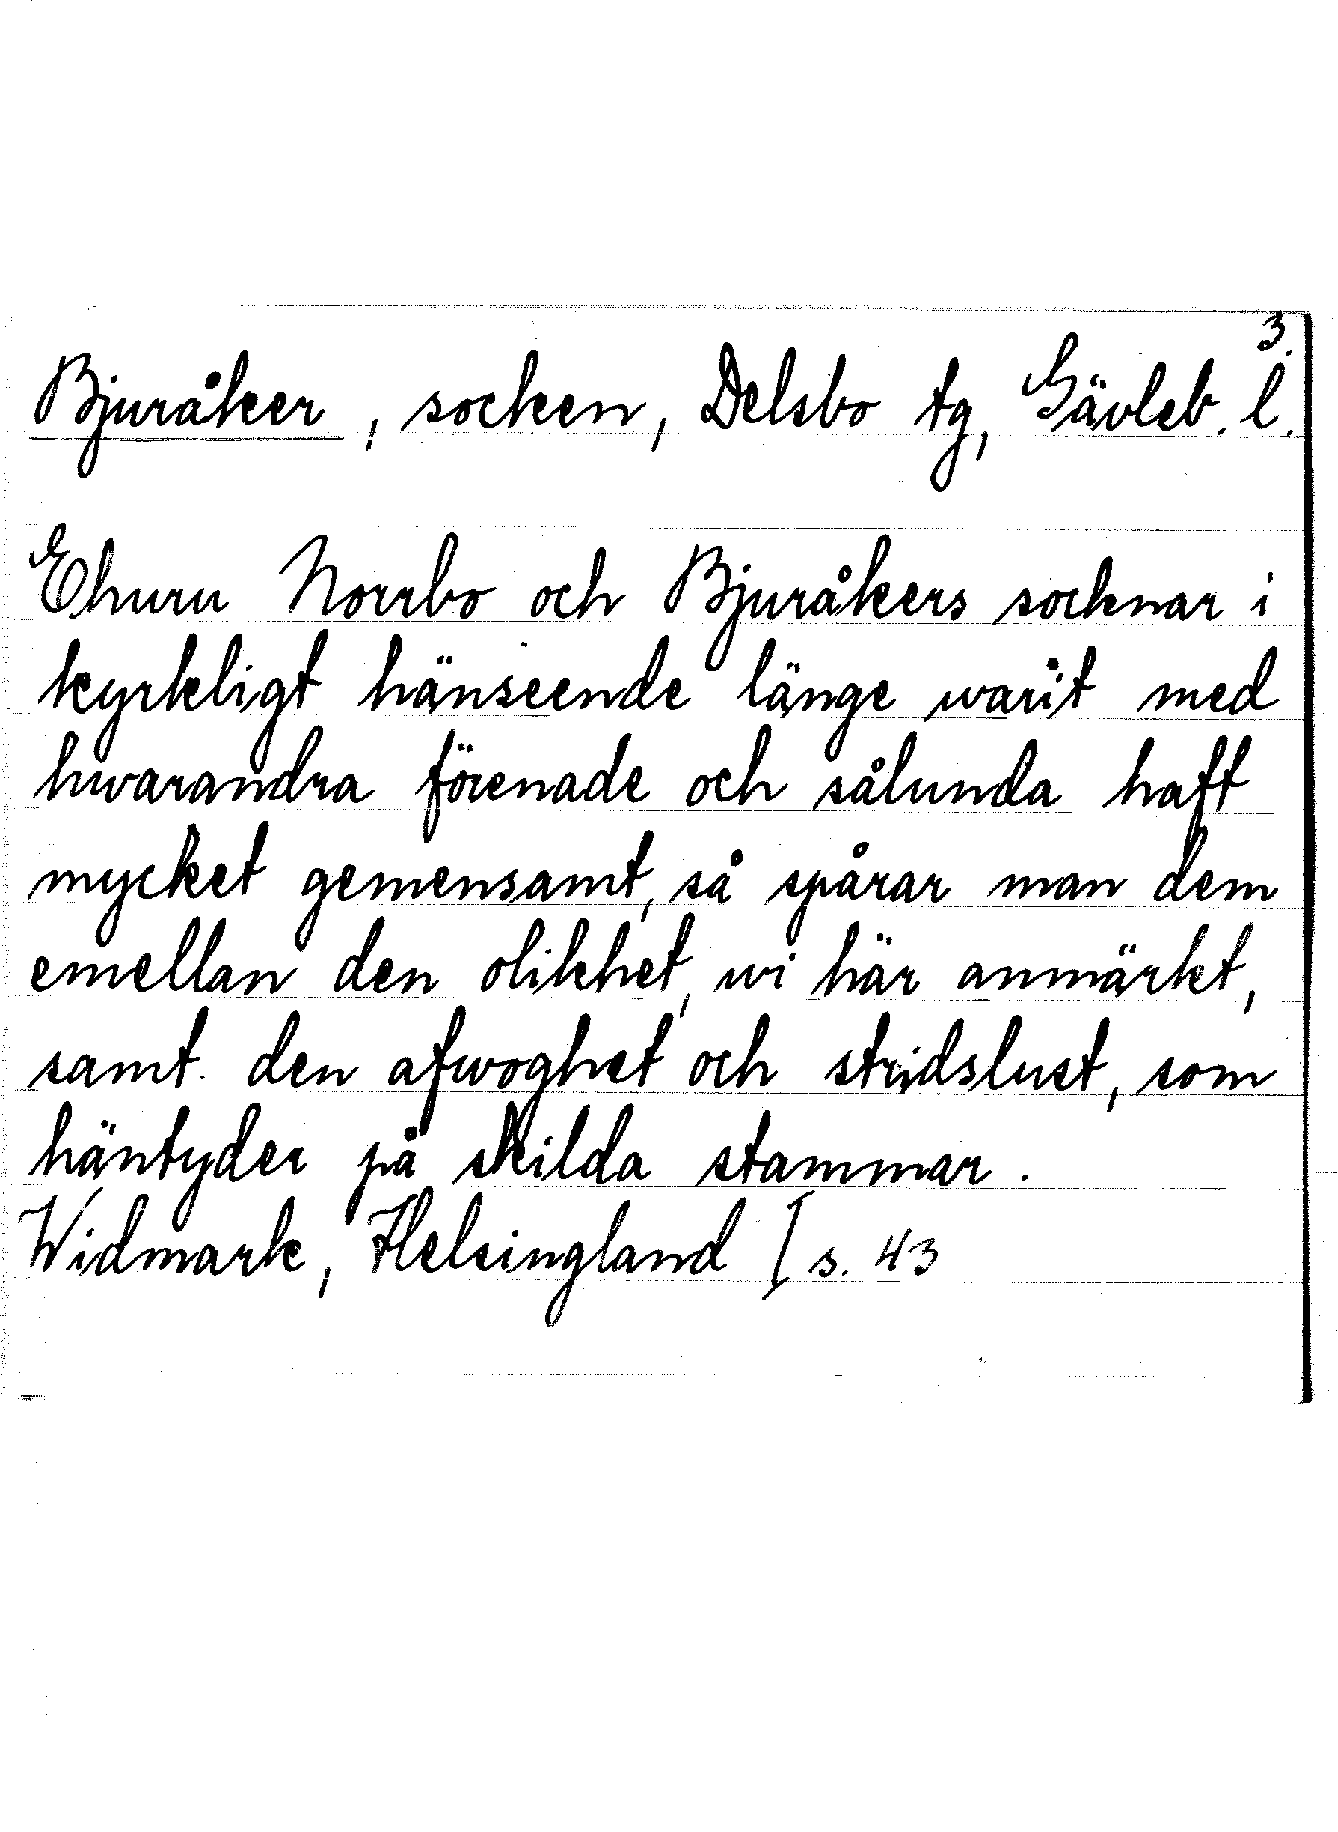 3.
Bjuråker, socken, Delsbo tg, Gävleb. l.
Ehuru Norrbo och Bjuråkers socknar i
kyrkligt hänseende länge warit med
hwarandra förenade och sålunda haft
mycket gemensamt, så spårar man dem
emellan den olikhet, wi här anmärkt,
samt den afwoghet och stridslust, som
häntyder på skilda stammar.
Widmark, Helsingland I s. 43